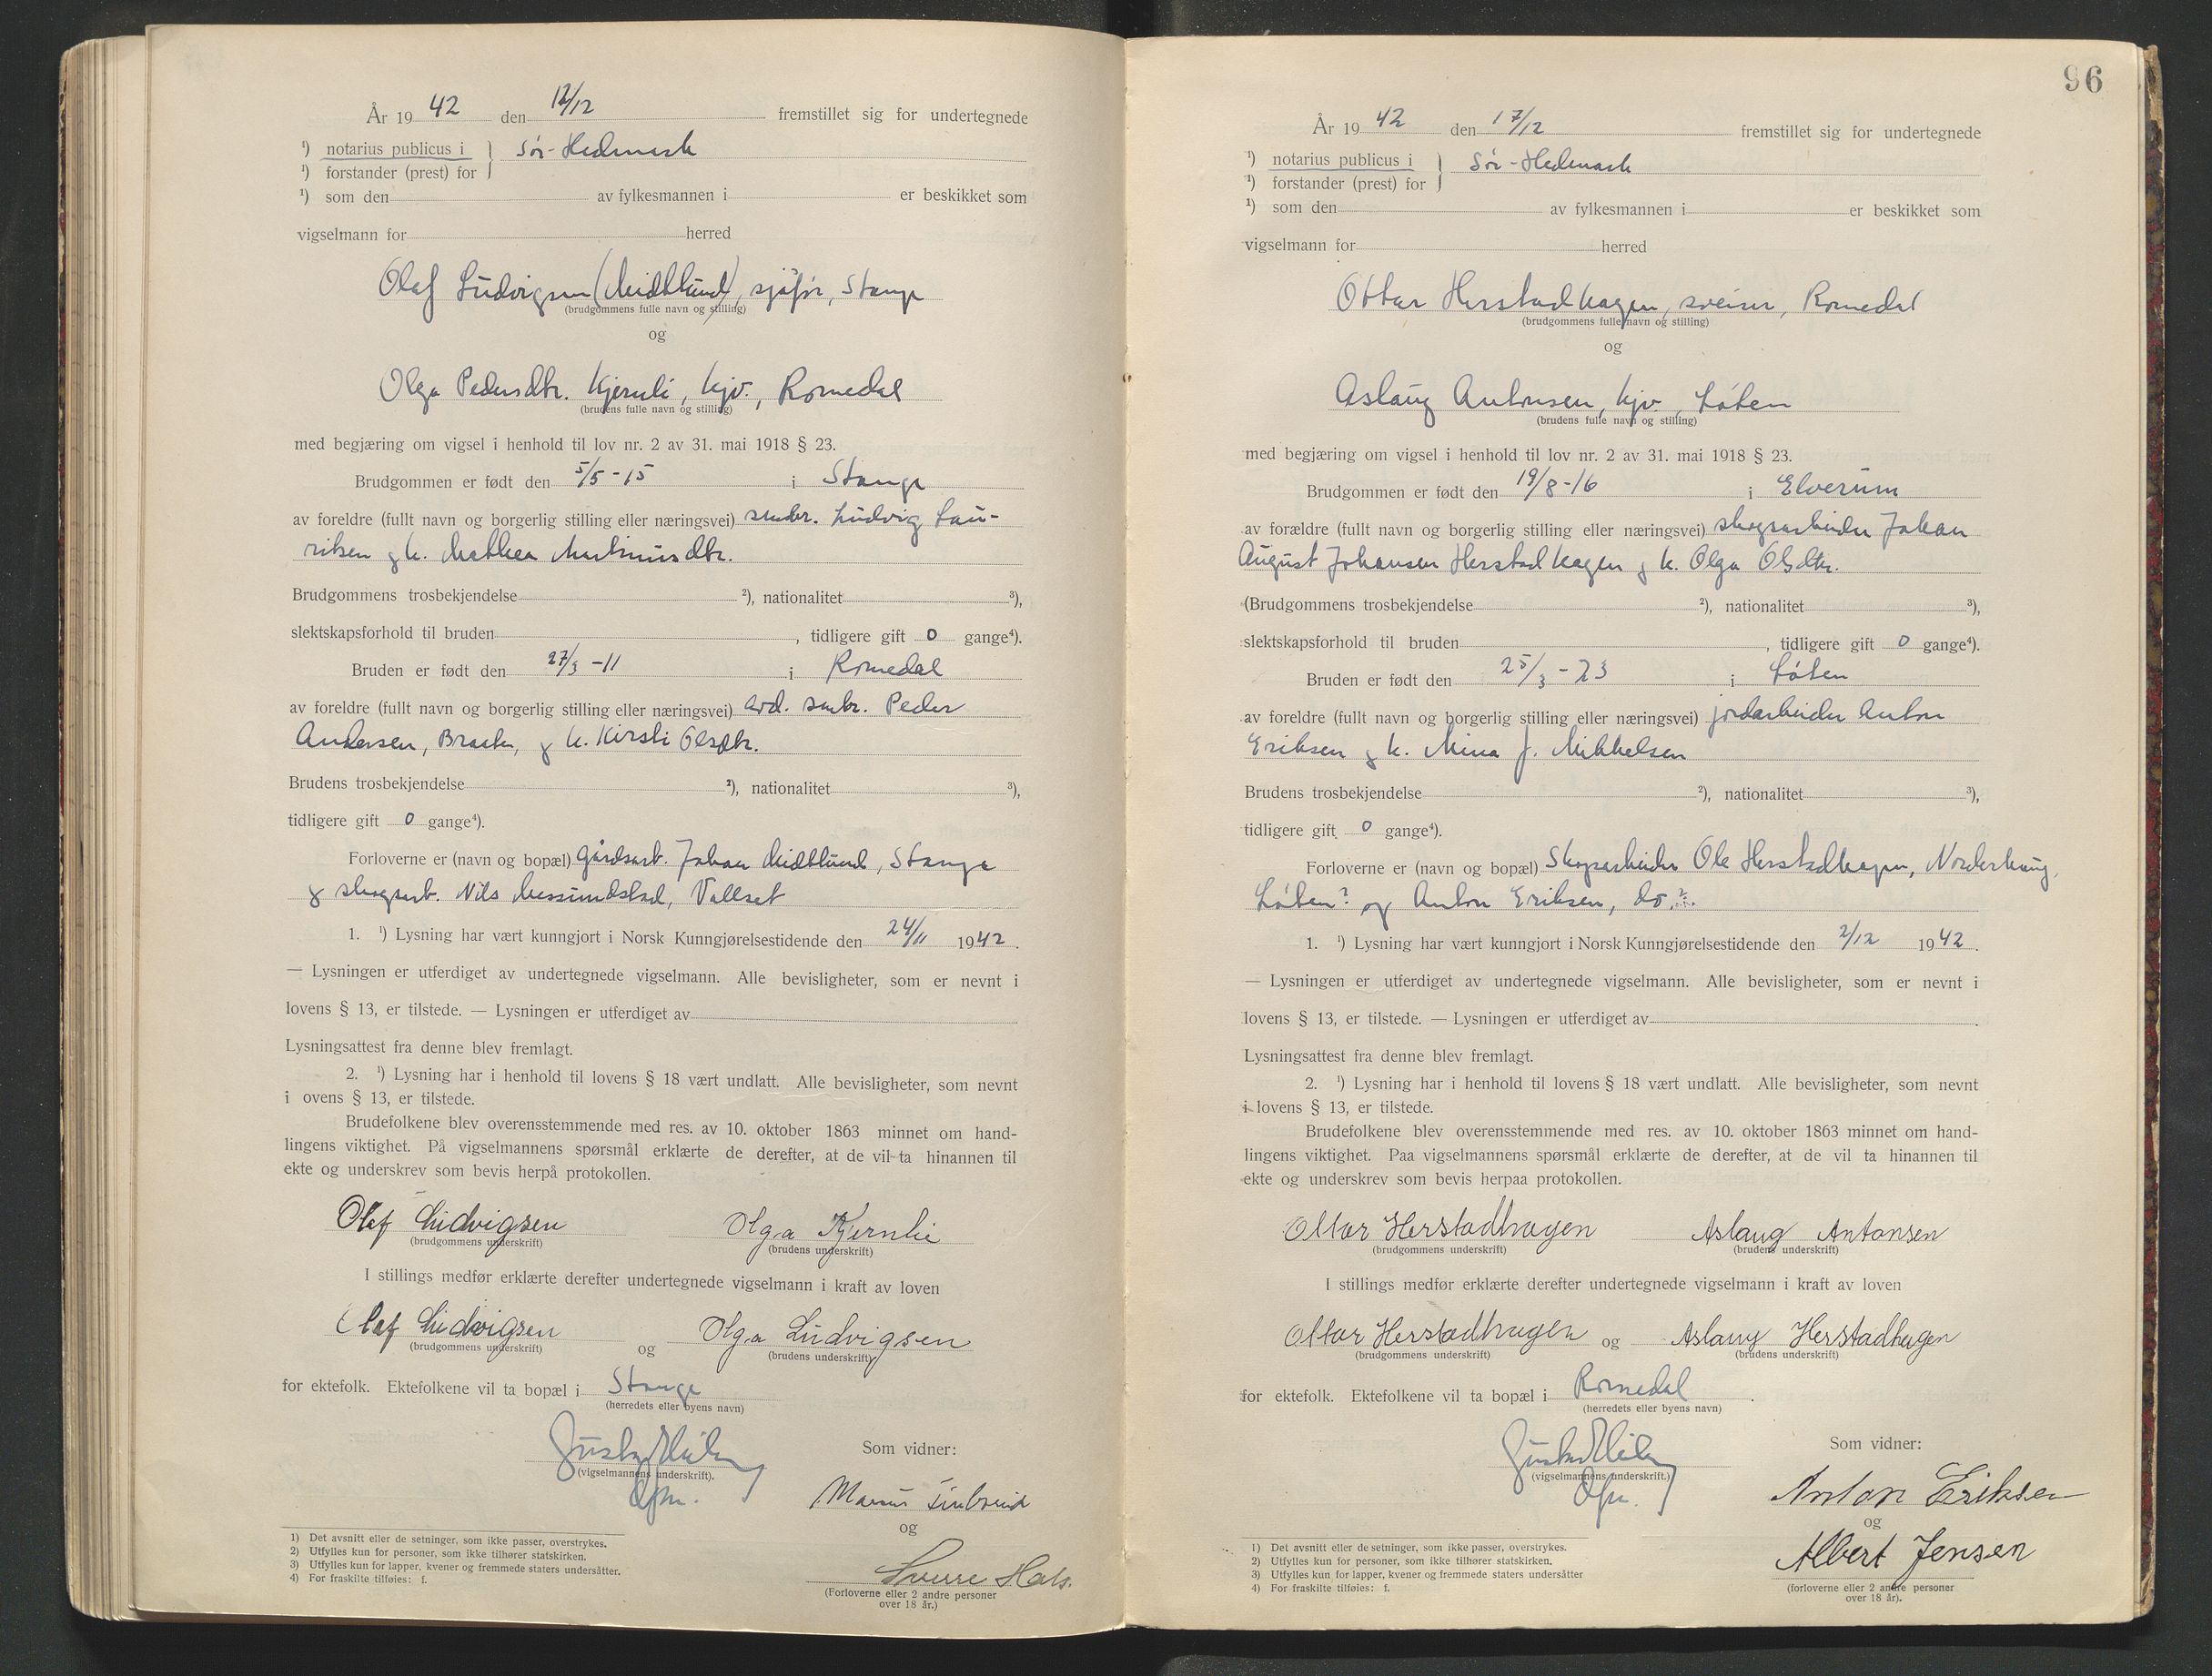 År 1942 den 12/12 fremstillet sig for undertegnede
¹) notarius publicus i } Sør-Hedmark
¹) forstander (prest) for
¹) som den av fylkesmannen i er beskikket som
vigselmann for herred
Olaf Ludvigsen (Midtlund), sjåfør, Stange
(brudgommens fulle navn og stilling)
og
Olga Pedersdtr. Kjernli, hjv., Romedal
(brudens fulle navn og stilling)
med begjæring om vigsel i henhold til lov nr. 2 av 31. mai 1918 § 23.
Brudgommen er født den 5/5-15 i Stange
av foreldre (fullt navn og borgerlig stilling eller næringsvei) småbr. Ludvig Lau-
ritsen og h. Mathea Martinusdtr.
Brudgommens trosbekjendelse ²), nationalitet ³),
slektskapsforhold til bruden , tidligere gift 0 gange⁴).
Bruden er født den 27/3-11 i Romedal
av foreldre (fullt navn og borgerlig stilling eller næringsvei) avd. småbr. Peder
Andersen, Braaten, og h. Kirsti Olsdtr.
Brudens trosbekjendelse ²), nationalitet ³),
tidligere gift 0 gange⁴).
Forloverne er (navn og bopæl) gårdsarb. Johan Midtlund, Stange
og skogsarb. Nils Mossundstad, Vallset
1. ¹) Lysning har vært kunngjort i Norsk Kunngjørelsestidende den 24/11 1942.
— Lysningen er utferdiget av undertegnede vigselmann. Alle bevisligheter, som er nevnt i
lovens § 13, er tilstede. — Lysningen er utferdiget av
Lysningsattest fra denne blev fremlagt.
2. ¹) Lysning har i henhold til lovens § 18 vært undlatt. Alle bevisligheter, som nevnt
i ovens § 13, er tilstede.
Brudefolkene blev overensstemmende med res. av 10. oktober 1863 minnet om hand-
lingens viktighet. På vigselmannens spørsmål erklærte de derefter, at de vil ta hinannen til
ekte og underskrev som bevis herpå protokollen.
Olaf Ludvigsen Olga Kjernlie
(brudgommens underskrift) (brudens underskrift)
I stillings medfør erklærte derefter undertegnede vigselmann i kraft av loven
Olaf Ludvigsen og Olga Ludvigsen
(brudgommens underskrift) (brudens underskrift)
for ektefolk. Ektefolkene vil ta bopæl i Stange
(herredets eller byens navn)
Som vidner:
(vigselmannens underskrift).
og
Sverre Hals.
(Forloverne eller 2 andre personer
over 18 år.)
1) Det avsnitt eller de setninger, som ikke passer, overstrykes.
2) Utfylles kun for personer, som ikke tilhører statskirken.
3) Utfylles kun for lapper, kvener og fremmede staters undersåtter.
4) For fraskilte tilføies: f.
96
År 1942 den 17/12 fremstillet sig for undertegnede
¹) notarius publicus i } Sør-Hedmark
¹) forstander (prest) for
¹) som den av fylkesmannen i er beskikket som
vigselmann for herred
Ottar Herstadhagen, sveiser, Romedal
(brudgommens fulle navn og stilling)
og
Aslaug Antonsen, hjv., Løten
(brudens fulle navn og stilling)
med begjæring om vigsel i henhold til lov nr. 2 av 31. mai 1918 § 23.
Brudgommen er født den 19/8-16 i Elverum
av forældre (fullt navn og borgerlig stilling eller næringsvei) skogsarbeider Johan
August Johansen Herstadhagen og h. Olga Olsdtr.
(Brudgommens trosbekjendelse ²), nationalitet ³),
slektskapsforhold til bruden , tidligere gift 0 gange⁴).
Bruden er født den 25/3-23 i Løten
av foreldre (fullt navn og borgerlig stilling eller næringsvei) jordarbeider Anton
Eriksen og h. Mina J. Mikkelsen
Brudens trosbekjendelse ²), nationalitet ³),
tidligere gift 0 gange⁴).
Forloverne er (navn og bopæl) Skogsarbeider Ole Herstadhagen, Norderhaug,
Løten? og Anton Eriksen, do.?
1. ¹) Lysning har vært kunngjort i Norsk Kunngjørelsestidende den 2/12 1942.
— Lysningen er utferdiget av undertegnede vigselmann. Alle bevisligheter, som er nevnt i
lovens § 13, er tilstede. — Lysningen er utferdiget av
Lysningsattest fra denne blev fremlagt.
2. ¹) Lysning har i henhold til lovens § 18 vært undlatt. Alle bevisligheter, som nevnt
i lovens § 13, er tilstede.
Brudefolkene blev overensstemmende med res. av 10. oktober 1863 minnet om hand-
lingens viktighet. Paa vigselmannens spørsmål erklærte de derefter, at de vil ta hinannen til
ekte og underskrev som bevis herpaa protokollen.
Ottar Herstadhagen Aslaug Antonsen
(brudgommens underskrift) (brudens underskrift)
I stillings medfør erklærte derefter undertegnede vigselmann i kraft av loven
Ottar Herstadhagen og Aslaug Herstadhagen
(brudgommens underskrift) (brudens underskrift)
for ektefolk. Ektefolkene vil ta bopæl i Romedal.
(herredets eller byens navn)
Som vidner:
(vigselmannens underskrift.)
Anton Eriksen
og
Albert Jensen
(forloverne eller 2 andre personer
over 18 år).
1) Det avsnitt eller de setninger, som ikke passer, overstrykes.
2) Utfylles kun for personer, som ikke tilhører statskirken.
3) Utfylles kun for lapper, kvener og fremmede staters undersåtter
4) For fraskilte tilføies: f.